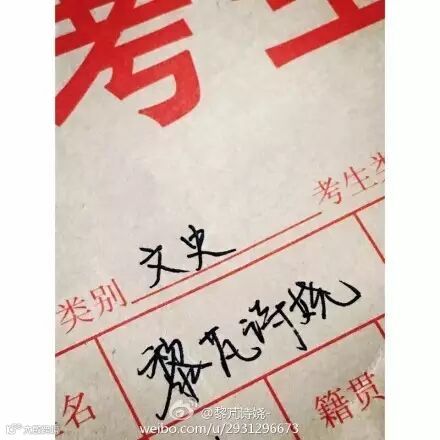 考生
考生类
类别 文史
名 黎芃诗娆
籍贯
@黎芃诗娆-
weibo.com/u/2931296673